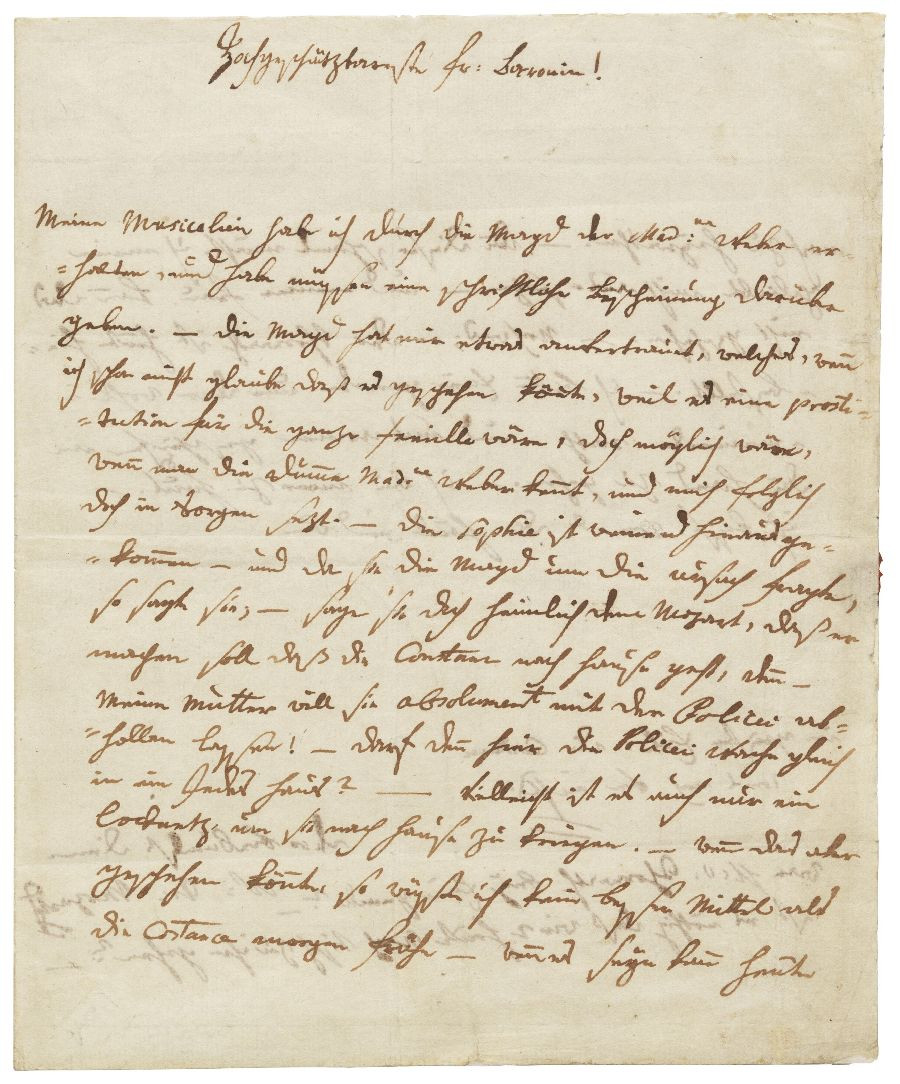 Hochgeschätzbareste fr: Baronin!
Meine Musicalien habe ich durch die Magd der Mad:me Weber er-
=halten, und habe müssen eine schriftliche bescheinung darüber
geben. — die Magd hat mir etwas anvertrauet, welches, wenn
ich schon nicht glaube daß es geschehen könnte, weil es eine prosti-
=tution für die ganze familie wäre, doch möglich wäre,
wenn man die dumme Mad:me Weber kennt, und mich folglich
doch in Sorgen setzt. — die Sophie ist weinend hinausge-
=kommen — und da sie die Magd um die ursach fragte,
so sagte sie; — sage sie doch heimlich dem Mozart, daß er
machen soll daß die Constanz nach hause geht, denn —
meine Mutter will sie absolument mit der Policei ab-
=hollen lassen! — darf denn hier die Policei Wache gleich
in ein Jedes haus? — Vielleicht ist es auch nur ein
locknetz um sie nach hause zu kriegen. — wenn das aber
geschehen könnte, so wüsste ich kein besser Mittel als
die Costance morgen frühe — wenn es seyn kann heute